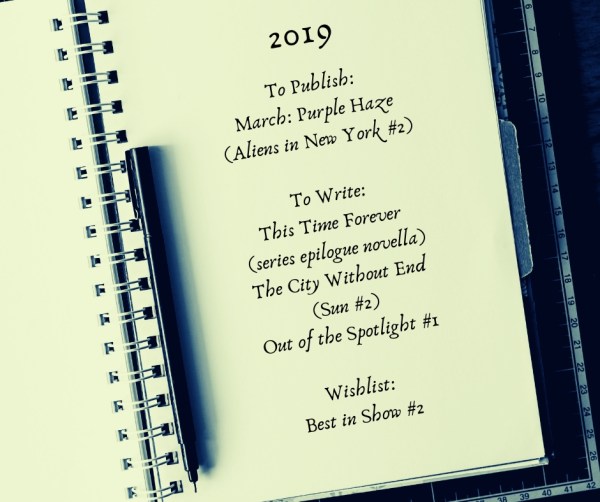 2019
To Publish:
March: Purple Haze
(Aliens in New York #2)
To Write:
This Time Forever
(series epilogue novella)
The City Without End
(Sun #2)
Out of the Spotlight #1
Wishlist:
Best in Show #2